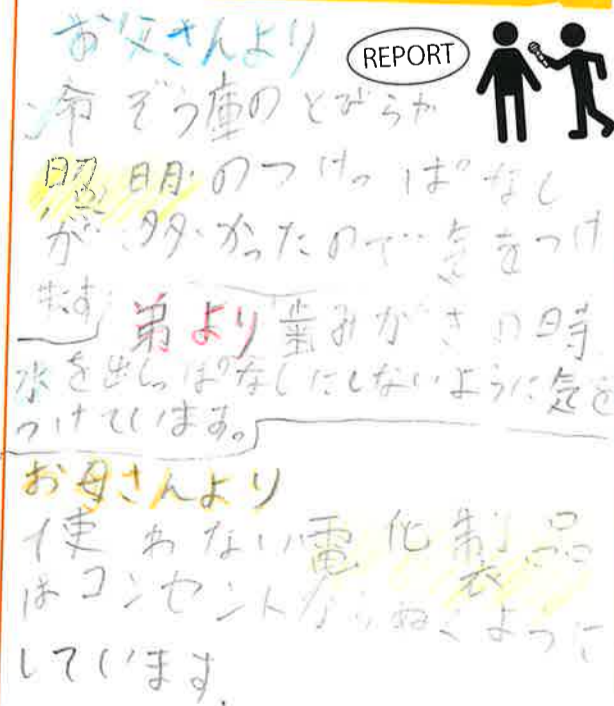 お父さんより
REPORT
冷ぞう庫のとびらや
照明のつけっぱなし
が多かったので気をつけ
ます
弟より 歯みがきの時
水を出しっぱなしにしないように気を
つけています。
お母さんより
使わない電化製品
はコンセントからぬくように
しています.